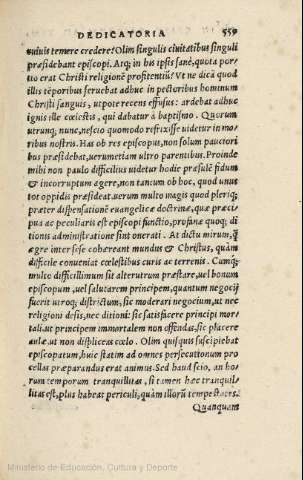 DEDICATORIA 559
suiuis temere credere? Olim singulis ciuitatibus singuli
præsidebant episcopi. Atq; in his ipsis sanè, quota por-
tio erat Christi religionē profitentiū? Vt ne dicā quod
illis tēporibus feruebat adhuc in pectoribus hominum
Christi sanguis, utpote recens effusus: ardebat adhuc
ignis ille cœlestis, qui dabatur à baptismo. Quorum
utrunq; nunc, nescio quomodo refrixisse uidetur in mo-
ribus nostris. Has ob res episcopis, non solum pauciori
bus præsidebat, uerumetiam ultro parentibus. Proinde
mihi non paulo difficilius uidetur hodie præsulē fidum
& incorruptum agere, non tantum ob hoc, quod unus
tot oppidis præsideat, uerum multo magis quod pleriq;
præter dispensationē euangelicæ doctrinæ, quæ præci
pua ac peculiaris est episcopi functio, profanæ quoq; di
tionis administratione sint onerati. At dictu mirum, q̃
ægre inter sese cohæreant mundus & Christus, quàm
difficile conueniat cœlestibus curis ac terrenis. Cumq;
multo difficillimum sit alterutrum præstare, uel bonum
episcopum, uel salutarem principem, quantum negocij
fuerit utroq; districtum, sic moderari negocium, ut nec
religioni desis, nec ditioni: sic satisfacere principi mor-
tali, ut principem immortalem non offendas, sic placere
aulæ, ut non displiceas cœlo. Olim quisquis suscipiebat
episcopatum, huic statim ad omnes persecutionum pro
cellas præparandus erat animus. Sed haud scio, an ho-
rum temporum tranquillitas, si tamen hæc tranquil-
litas est, plus habeat periculi, quàm illorū tempestates.
Quanquam
Ministerio de Educación, Cultura y Deporte